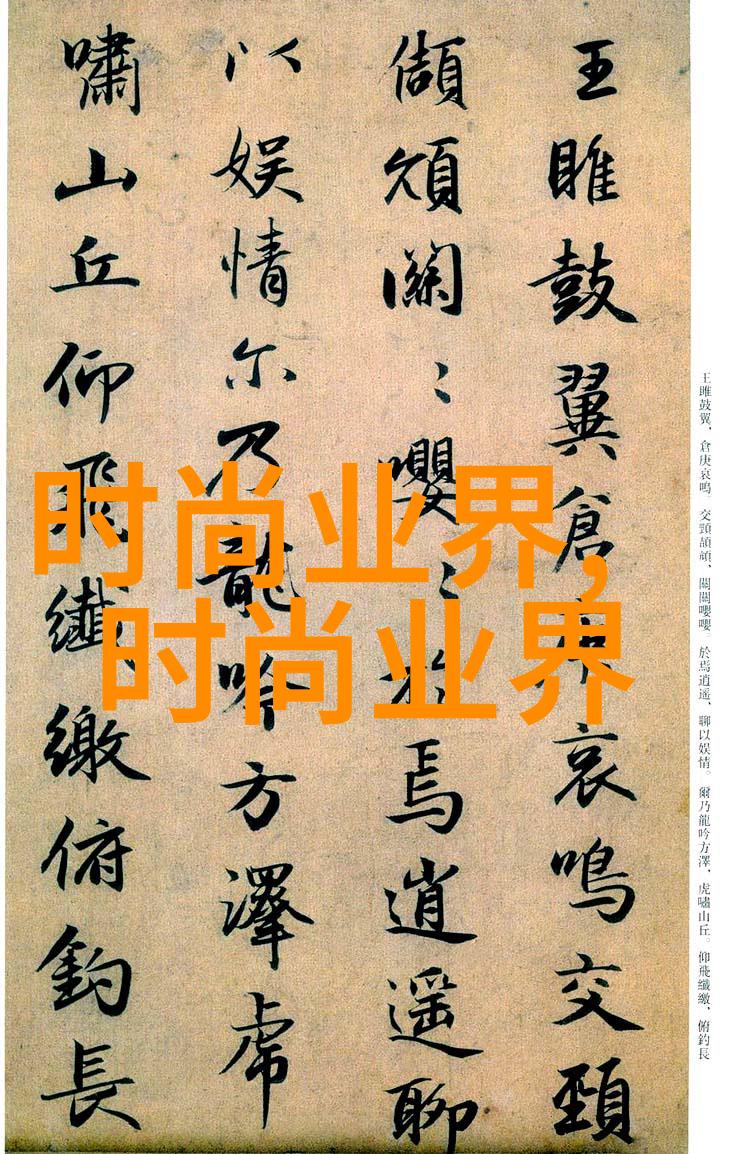 王雎鼓翼、倉庚哀鳴。交頸頡頏、關關嚶嚶。於焉逍遥、聊以娱情。爾乃龍吟方澤、虎嘯山丘。仰飛纖繳、俯釣長
王雎鼓翼倉庚哀鳴交頸
頡頏關〻嚶〻於焉逍遥聊
以娱情尔乃龍吟方澤虎
嘯山丘仰飛纖繳俯釣長
时尚业界,
时尚业界